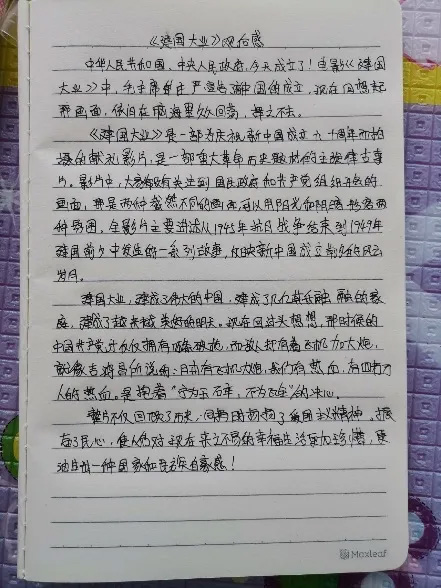 《建国大业》观后感
中华人民共和国、中央人民政府,今天成立了!电影《建国
大业》中,毛主席庄严宣告新中国的成立,现在回想起
那画面,依旧在脑海里久久回荡,挥之不去。
《建国大业》是一部为庆祝新中国成立六十周年而拍
摄的献礼影片,是一部重大革命历史题材的主旋律故事
片。影片中,大家都没有关注到国民政府和共产党组织开会的
画面,那是两种截然不同的画面,可以用阳光和阴暗形容两
种氛围,全影片主要讲述从1945年抗日战争结束到1949年
建国前夕中发生的一系列故事,反映新中国成立前夕的风云
岁月。
建国大业,建成了伟大的中国,建成了几亿其乐融融的家
庭,建成了越来越美好的明天。现在回过头想想,那时候的
中国共产党仅仅拥有破枪,而敌人拥有着飞机加大炮,
就像吉鸿昌的说的:日本有飞机大炮,我们有热血,有四百万
人的热血。是抱着“宁为玉碎,不为瓦全”的决心。
整片不仅回顾了历史,同时也弘扬了爱国主义精神,振
奋了民心,使人们对现在来之不易的幸福生活更加珍惜,更
油生出一种国家和民族自豪感!
Maxleaf